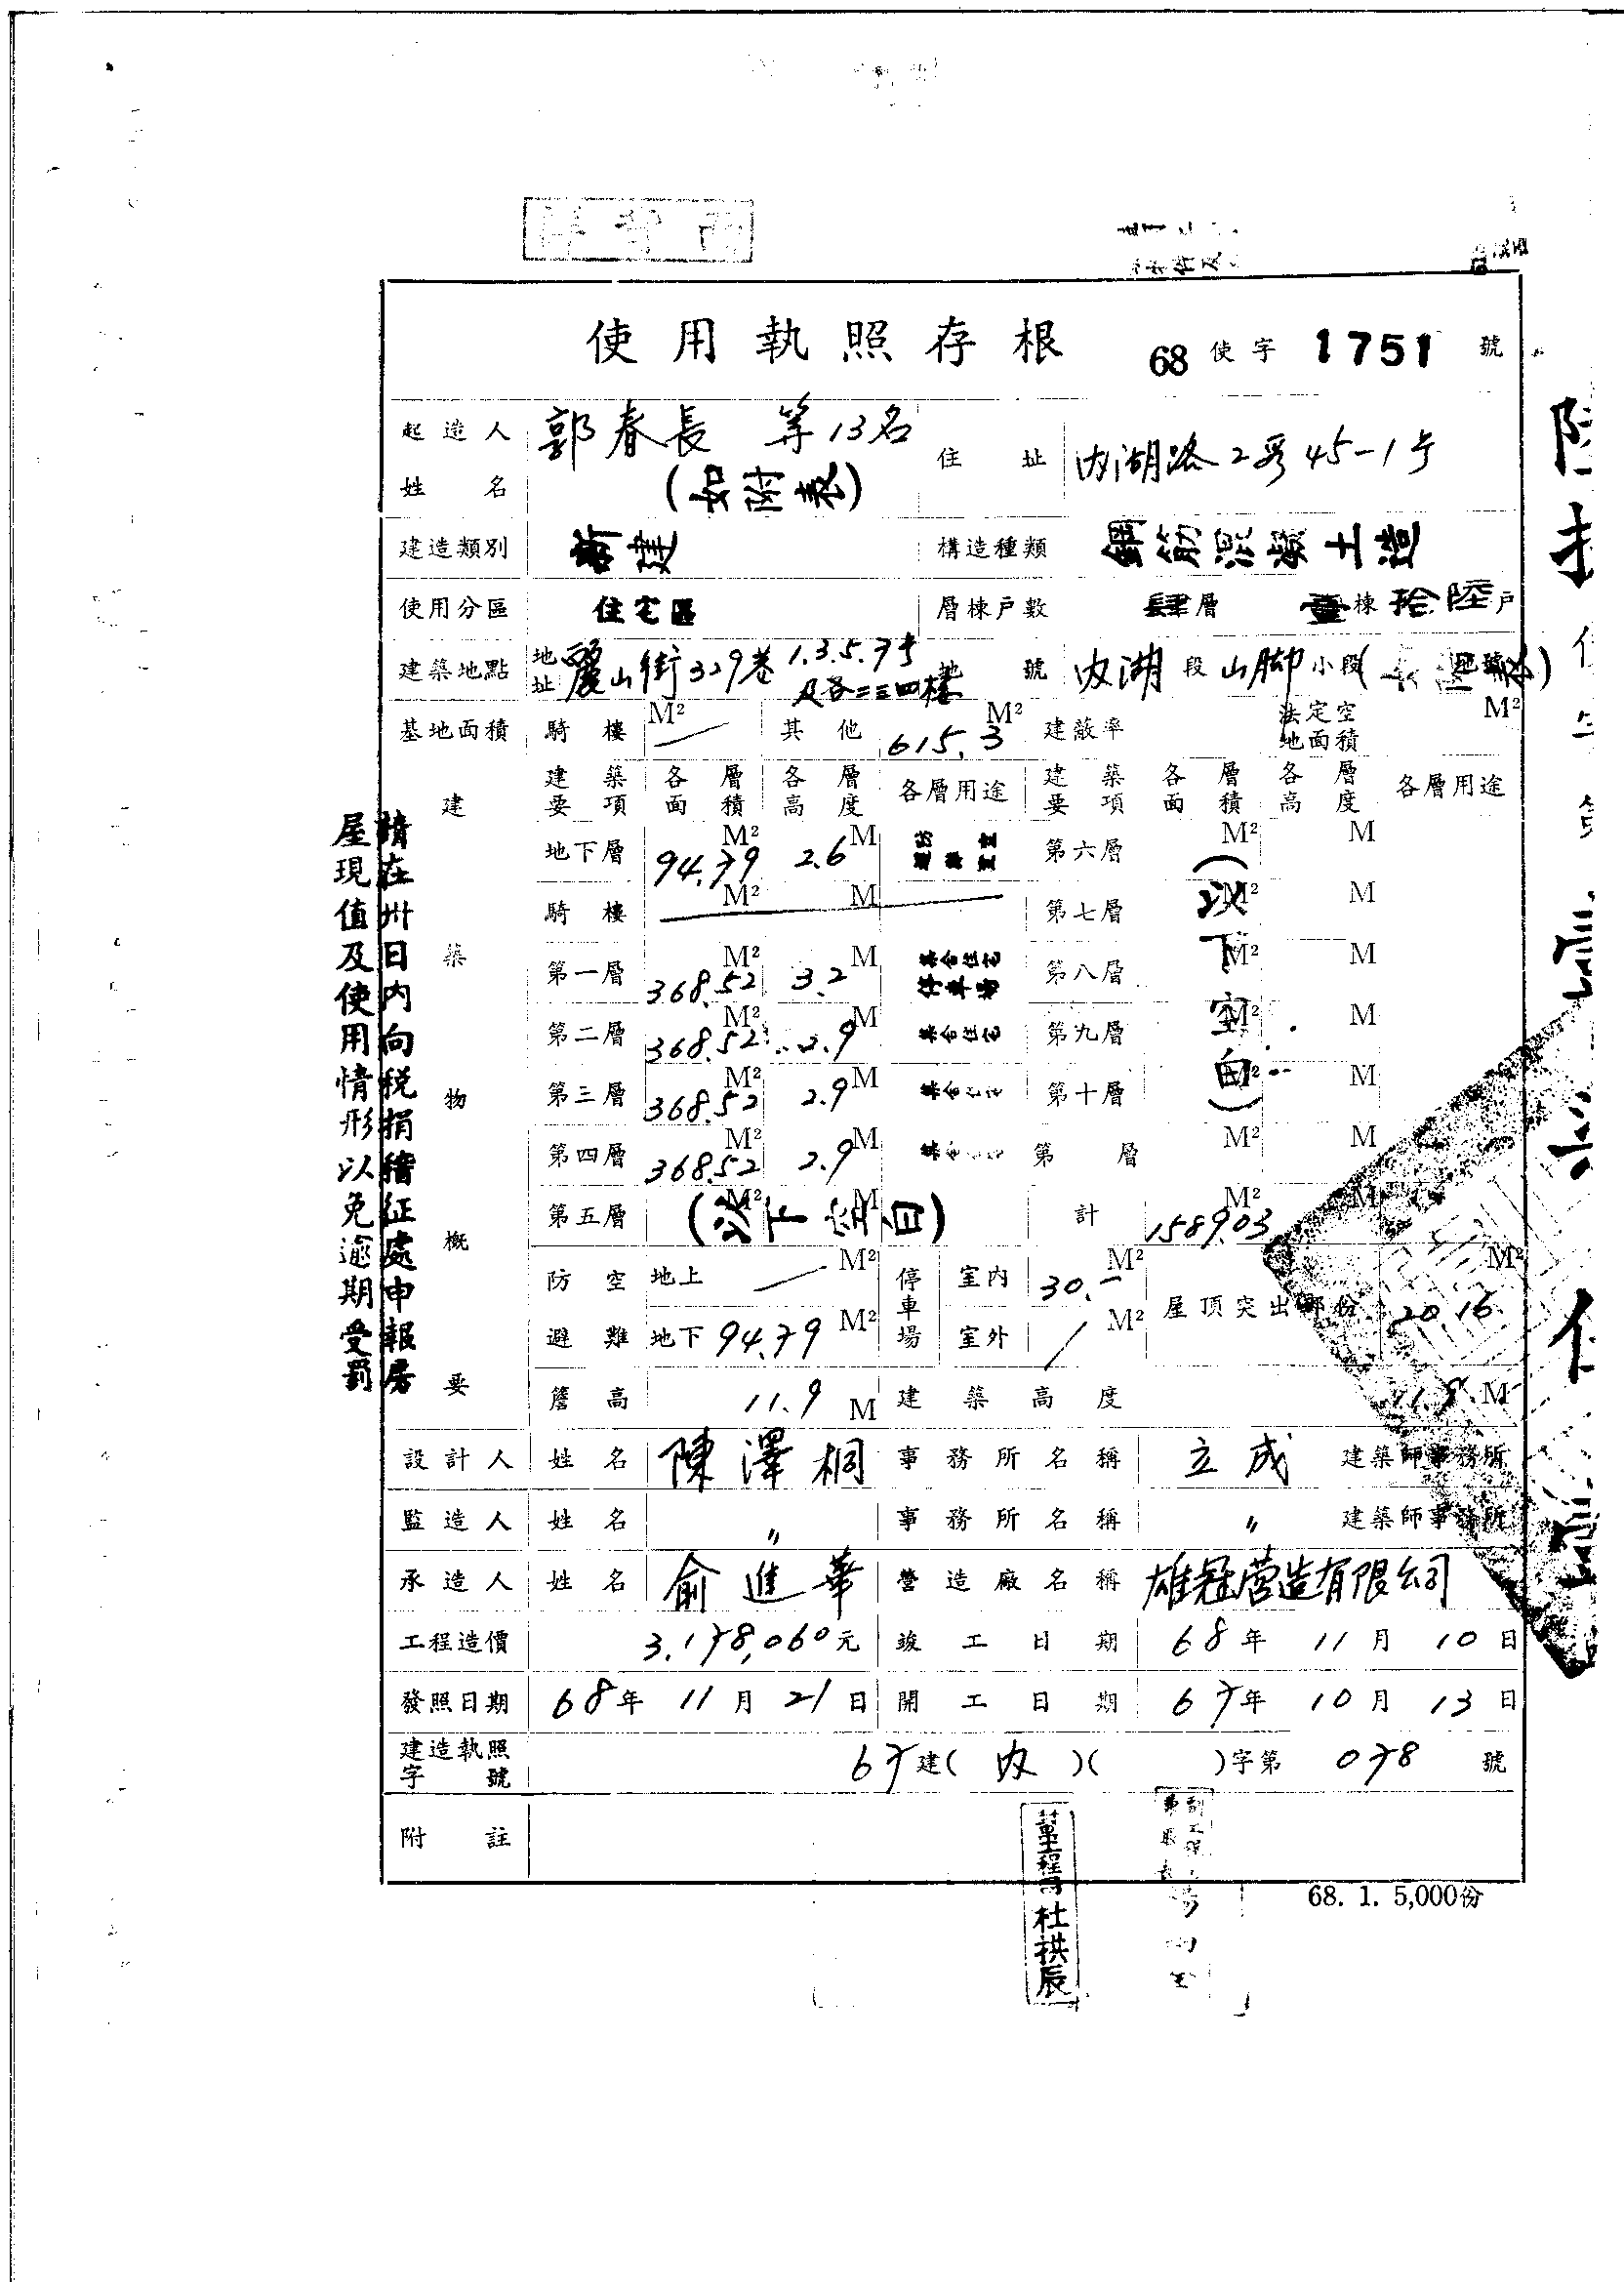 使用執照存根 68 使字 1751 號
起造人姓名 郭春長 等13名 (如附表) 住址 內湖路2段45-1号
建造類別 新建 構造種類 鋼筋混凝土造
使用分區 住宅區 層棟戶數 肆層 壹棟 拾陸戶
建築地點 地址 麗山街329巷1.3.5.7号及各二三四樓 地號 內湖段 山脚小段
基地面積 騎樓 M² 其他 615.3 M² 建蔽率 法定空地面積 M²
建築物概要
建築要項 各層面積 各層高度 各層用途 建築要項 各層面積 各層高度 各層用途
地下層 94.79 M² 2.6 M 防空避難室 第六層 M² M
騎樓 M² M 第七層 M² M
第一層 368.52 M² 3.2 M 集合住宅停車場 第八層 M² M
第二層 368.52 M² 2.9 M 集合住宅 第九層 M² M
第三層 368.52 M² 2.9 M 集合住宅 第十層 M² M
第四層 368.52 M² 2.9 M 集合 第 層 M² M
(以下空白)
第五層 (以下空白) M² M 計 1589.03 M² M
防空避難 地上 M² 停車場 室內 30.- M² 屋頂突出部份 20.16 M²
地下 94.79 M² 室外 M²
簷高 11.9 M 建築高度 11.9 M
設計人 姓名 陳澤桐 事務所名稱 立成 建築師事務所
監造人 姓名 〃 事務所名稱 〃 建築師事務所
承造人 姓名 俞進華 營造廠名稱 雄冠营造有限公司
工程造價 3,178,060元 竣工日期 68年 11月 10日
發照日期 68年 11月 21日 開工日期 67年 10月 13日
建造執照字號 67建(內)( )字第 078 號
附註
68. 1. 5,000份
請在卅日內向稅捐稽征處申報房
屋現值及使用情形以免逾期受罰
杜祺辰